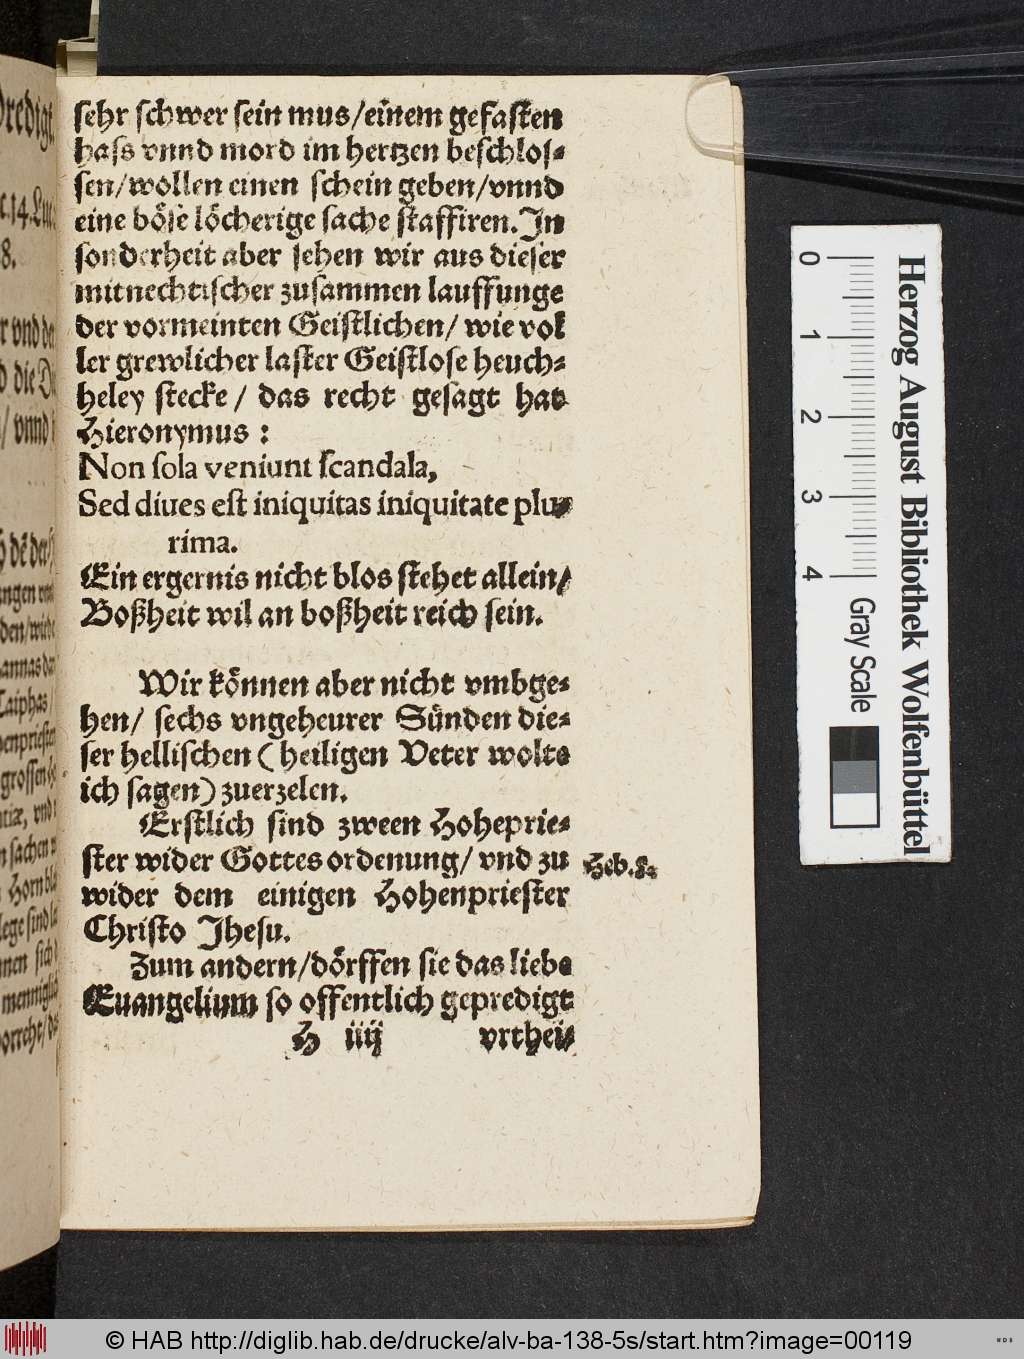 sehr schwer sein mus/einem gefasten
hass vnnd mord im hertzen beschlos⸗
sen/wollen einen schein geben/vnnd
eine böse löcherige sache staffiren. In
sonderheit aber sehen wir aus dieser
mitnechtischer zusammen lauffunge
der vormeinten Geistlichen/ wie vol
ler grewlicher laster Geistlose heuch⸗
heley stecke/ das recht gesagt hat
Hieronymus :
Non ſola veniunt ſcandala,
Sed diues eſt iniquitas iniquitate plu⸗
rima.
Ein ergernis nicht blos stehet allein/
Boßheit wil an boßheit reich sein.
Wir können aber nicht vmbge⸗
hen/ sechs vngeheurer Sünden die⸗
ser hellischen (heiligen Veter wolte
ich sagen) zuerzelen.
Erstlich sind zween Hoheprie⸗
ster wider Gottes ordenung/ vnd zu
wider dem einigen Hohenpriester
Christo Jhesu.
Heb. 8.
Zum andern/dörffen sie das liebe
Euangelium so offentlich gepredigt
H iiij vrthei⸗
Predigt.
14. Luc.
8.
vnd
die
vnnd
Caiphas
grossen
vnd
sachen
Horn
lege sind
sich
menniglich
0 1 2 3 4
Gray Scale
Herzog August Bibliothek Wolfenbüttel
© HAB http://diglib.hab.de/drucke/alv-ba-138-5s/start.htm?image=00119
WDB